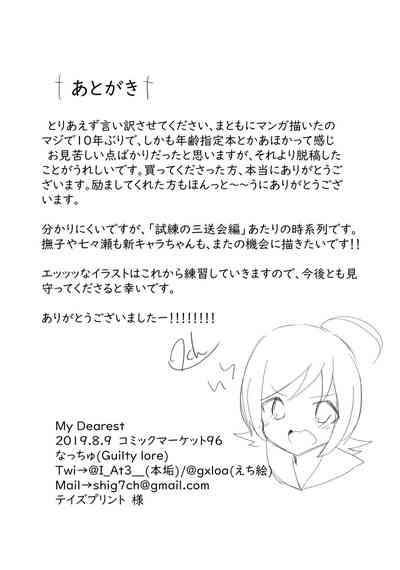 †あとがき†
とりあえず言い訳させてください、まともにマンガ描いたの
マジで10年ぶりで、しかも年齢指定本とかあほかって感じ
お見苦しい点ばかりだったと思いますが、それより脱稿した
ことがうれしいです。買ってくださった方、本当にありがとうご
ざいます。励ましてくれた方もほんっと〜〜うにありがとうござ
います。
分かりにくいですが、「試練の三送会編」あたりの時系列です。
撫子や七々瀬も新キャラちゃんも、またの機会に描きたいです!!
エッッッなイラストはこれから練習していきますので、今後とも見
守ってくださると幸いです。
ありがとうございましたー!!!!!!!!
My Dearest
2019.8.9 コミックマーケット96
なっちゅ(Guilty lore)
Twi→@I_At3__(本垢)/@gxloa(えち絵)
Mail→shig7ch@gmail.com
テイズプリント 様